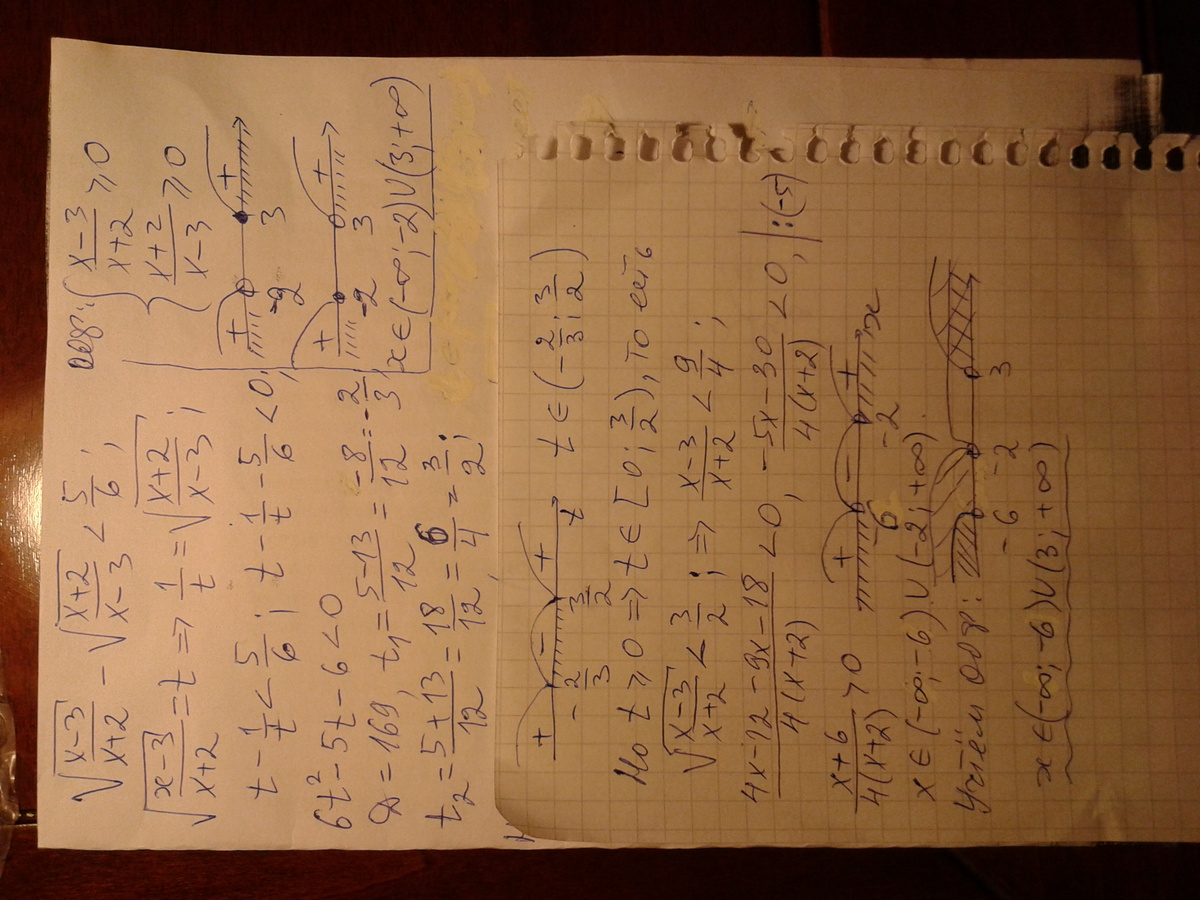 √((x-3)/(x+2)) - √((x+2)/(x-3)) < 5/6;
√((x-3)/(x+2)) = t => 1/t = √((x+2)/(x-3));
t - 1/t < 5/6; t - 1/t - 5/6 < 0;
6t² - 5t - 6 < 0
D = 169, t₁ = (5-13)/12 = -8/12 = -2/3,
t₂ = (5+13)/12 = 18/12 = 6/4 = 3/2;
одз: { (x-3)/(x+2) ≥ 0
(x+2)/(x-3) ≥ 0
+ +
-2 3
+ +
-2 3
x ∈ (-∞; -2) U (3; +∞)
+ - +
-2/3 3/2 t
t ∈ (-2/3; 3/2)
Но t ≥ 0 => t ∈ [0; 3/2), то есть
√((x-3)/(x+2)) < 3/2; => (x-3)/(x+2) < 9/4;
(4x-12-9x-18)/(4(x+2)) < 0, (-5x-30)/(4(x+2)) < 0, |:(-5)
(x+6)/(4(x+2)) > 0
+ - +
-6 -2 x
x ∈ (-∞; -6) U (-2; +∞)
Учтём одз:
-6 -2 3
x ∈ (-∞; -6) U (3; +∞)